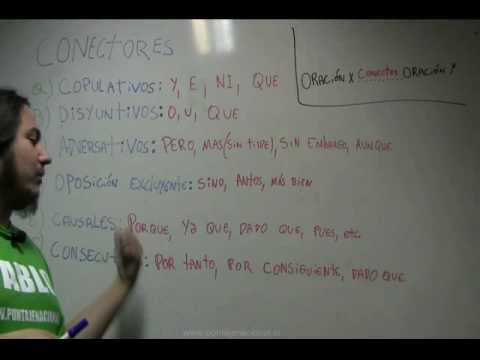 CONECTORES
a) COPULATIVOS: Y, E, NI, QUE
) DISYUNTIVOS: O, U, QUE
ADVERSATIVOS: PERO, MAS (SIN TILDE), SIN EMBARGO, AUNQUE
OPOSICIÓN EXCLUYENTE: SINO, ANTES, MÁS BIEN
CAUSALES: PORQUE, YA QUE, DADO QUE, PUES, etc.
CONSECUTI : POR TANTO, POR CONSIGUIENTE, DADO QUE
ORACIÓN X Conector ORACIÓN Y
PABL
.PONTAJENACIONAL
www.pontajenacional.cl